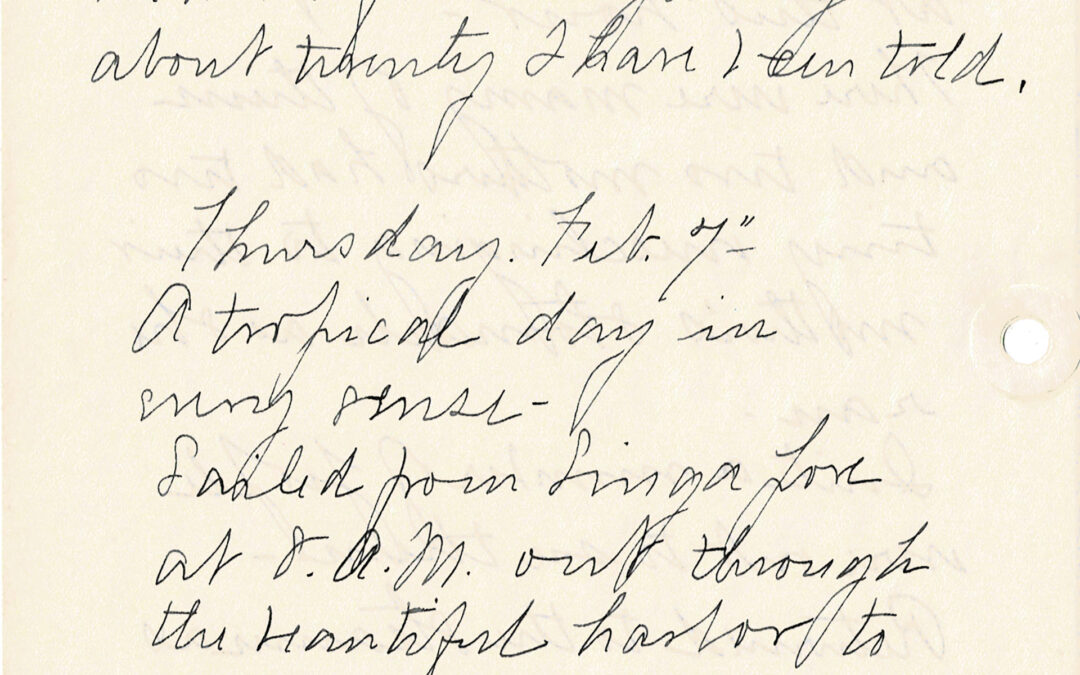 about twenty I have been told.
Thursday. Feb. 7"
A tropical day in
every sense-
Sailed from Singapore
at 8. A.M. out through
the beautiful harbor to